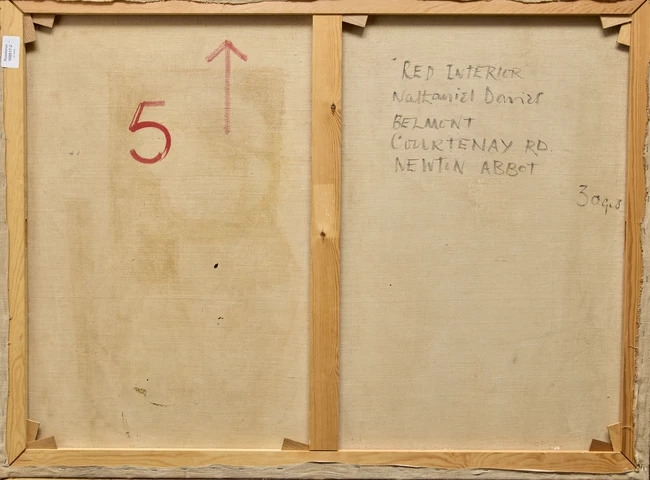 5
RED INTERIOR
Nathaniel Davies
BELMONT
COURTENAY RD.
NEWTON ABBOT
3 ags